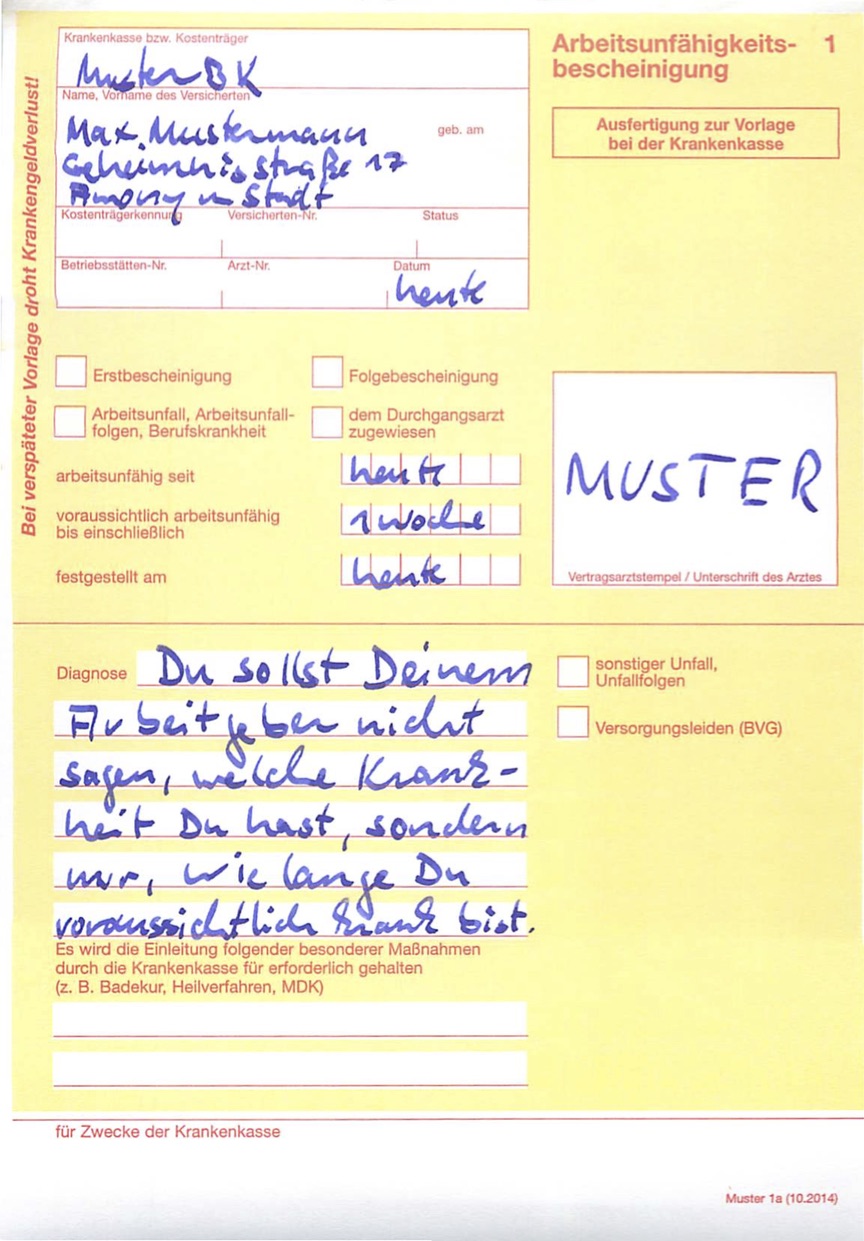 Krankenkasse bzw. Kostenträger
Muster BK
Name, Vorname des Versicherten
Max Mustermann
geb. am
Geheimnisstraße 17
Anonym Stadt
Kostenträgerkennung Versicherten-Nr. Status
Betriebsstätten-Nr. Arzt-Nr. Datum
heute
Arbeitsunfähigkeits- 1
bescheinigung
Ausfertigung zur Vorlage
bei der Krankenkasse
Bei verspäteter Vorlage droht Krankengeldverlust!
Erstbescheinigung
Folgebescheinigung
Arbeitsunfall, Arbeitsunfall-
folgen, Berufskrankheit
dem Durchgangsarzt
zugewiesen
arbeitsunfähig seit heute
voraussichtlich arbeitsunfähig
bis einschließlich
1 Woche
festgestellt am heute
MUSTER
Vertragsarztstempel / Unterschrift des Arztes
Diagnose Du sollst Deinem
Arbeitgeber nicht
sagen, welche Krank-
heit Du hast, sondern
nur, wie lange Du
voraussichtlich krank bist.
sonstiger Unfall,
Unfallfolgen
Versorgungsleiden (BVG)
Es wird die Einleitung folgender besonderer Maßnahmen
durch die Krankenkasse für erforderlich gehalten
(z. B. Badekur, Heilverfahren, MDK)
für Zwecke der Krankenkasse
Muster 1a (10.2014)